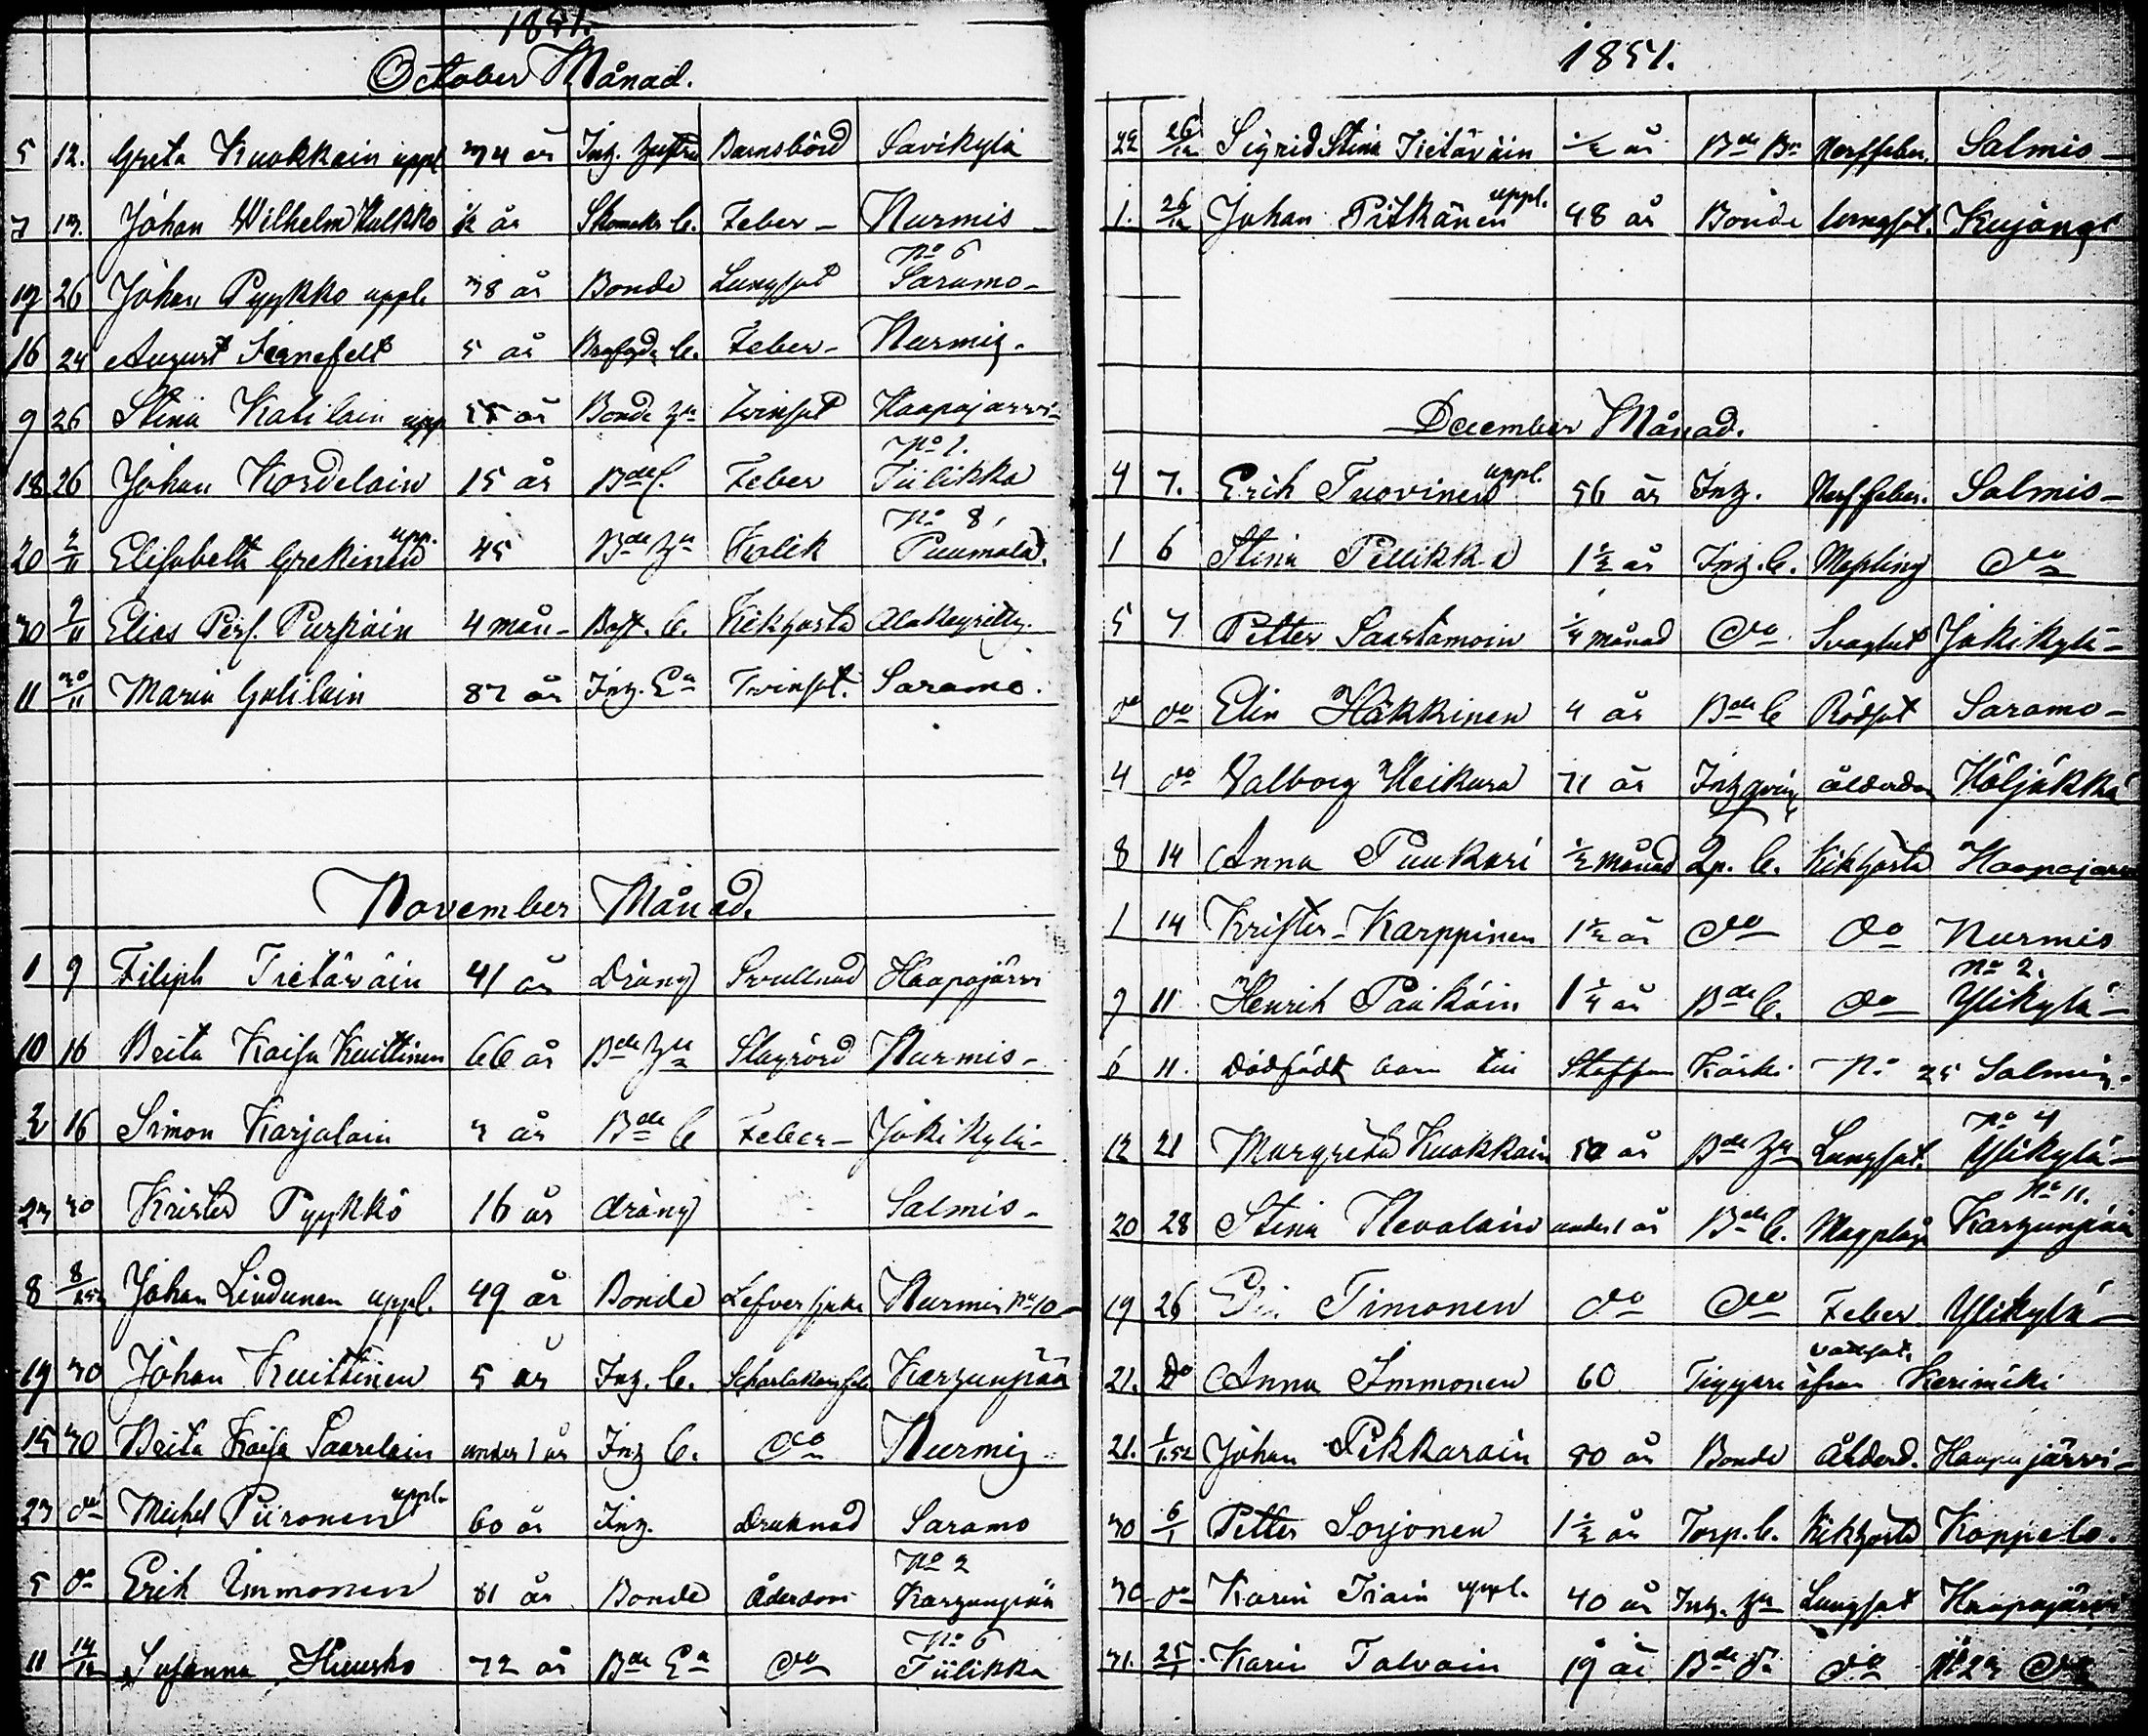 1851.
October Månad.
5 12. Greta Kuokkain uppl 34 år Inh. hustru Barnsbörd Savikylä
7 13. Johan Wilhelm Kulkko ½ år Skomak. b. Feber - Nurmis
No 6
17 26 Johan Pyykko uppl. 38 år Bonde Lungsot Saramo -
16 24 August 5 år b. Feber - Nurmis.
9 26 Stina Katilain upp 55 år Bonde hu Tvinsot Haapajarvi -
No 1.
18 26 Johan Kordelain 15 år Bde Feber Tiilikka
No 8.
upp.
20 2/11 Elisabeth Grekinen 45 Bde hu Kolik Puumala.
30 9/11 Elias Pehs. Purpain 4 mån - b. Kikhosta
11 30/11 Maria Galilain 87 år Inh. Ea Tvinsot. Saramo.
November Månad.
1 9 Filiph Tietäväin 41 år Dräng Svullnad Haapajärvi
10 16 Brita Kaisa Kuittinen 66 år Bde hu Slagrörd Nurmis -
2 16 Simon Karjalain 3 år Bde b Feber - Jokikylä -
23 30 Krister Pyykkö 16 år dräng Salmis -
8 8/ Johan Lindunen uppl. 49 år Bonde Lefversjuka Nurmis No 10 -
19 30 Johan Kuittinen 5 år Inh. b. Scharlakansfeb. Karhunpää
15 30 Brita Kaisa Saarelain under 1 år Inh b. do Nurmis
23 do Michel Piironen uppl. 60 år Inh. Druknad Saramo
No 2
5 do Erik Immonen 81 år Bonde Ålderdom Karhunpää
No 6
11 14/12 Susanna Huusko 72 år Bde Ea do Tiilikka
1851.
22 26/12 Sigrid Stina Tietäväin ½ år Bde Nerffeber. Salmis -
uppl.
1. 26/12 Johan Pitkänen 48 år Bonde Lungsot.
December Månad.
uppl.
4 7. Erik Tuovinen 56 år Inh. Nerffeber. Salmis -
1 6 Stina Pulikka 1½ år Inh. b. Messling do
5 7 Petter Saastamoin ¼ månad do Jokikylä -
do do Elin Häkkinen 4 år Bde b Rödsot Saramo -
4 do Valborg Heikura 71 år Inh qvin ålderdom Höljäkkä
8 14 Anna Puukari ½ Månad b. Kikhosta Haapajarvi
1 14 Krister Karppinen 1½ år do do Nurmis
No 2.
9 11 Henrik Pääkäin 1¼ år Bde b. do Ylikylä -
6 11. Dödfödt barn till Staffan Kärki No 25 Salmis.
No 4
12 21 Margreta Kuokkain 50 år Bde hu Lungsot. Ylikylä -
No 11.
20 28 Stina Nevalain under 1 år Bde b. Magplåga Karhunpää
19 26 Timonen do do Feber Ylikylä -
vattsot.
21. Do Anna Immonen 60 Tiggare ifrån Kerimäki
21. 1/1.52 Johan Pikkarain 80 år Bonde Ålderd. Haapajärvi -
30 6/1 Petter Sorjonen 1½ år Torp. b. Kikhosta Koppelo.
30 do Karin uppl. 40 år Inh. hu Lungsot Haapajärvi
31. 25/1 Karin Talvain 19 år Bde d. do No 23 do